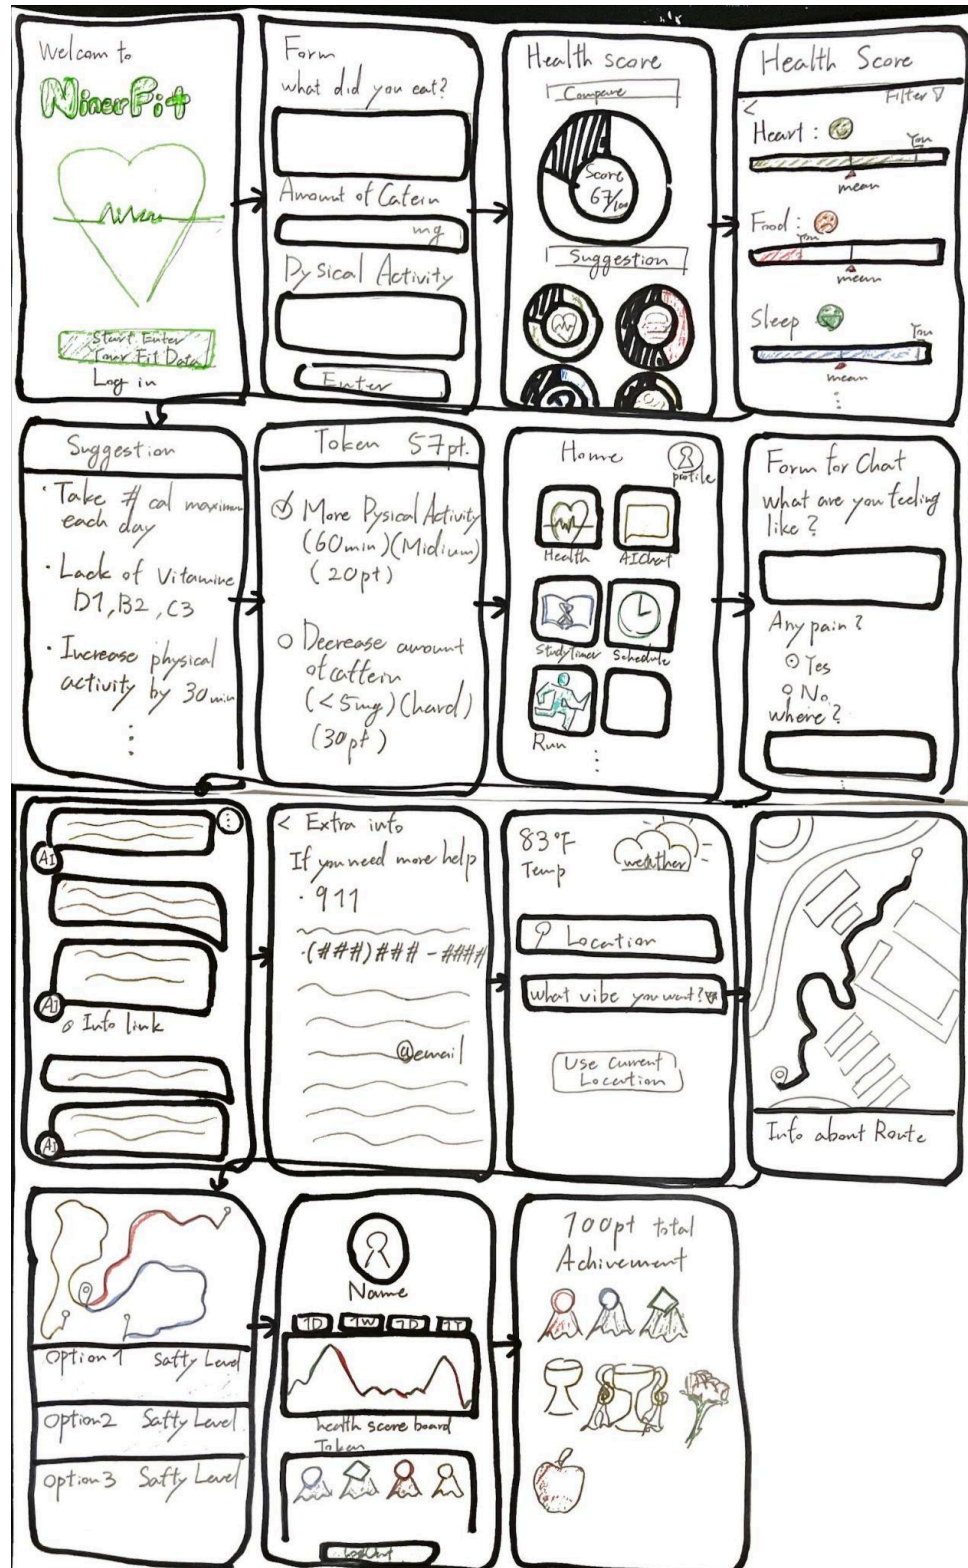 Welcom to
NinerFit
Start Enter
Your Fit Data
Log in
Form
what did you eat?
Amount of Catein
mg
Pysical Activity
Enter
Health score
Compare
Score
67/100
Suggestion
Health Score
<
Filter
Heart :
You
mean
Food :
You
mean
Sleep
You
mean
:
Suggestion
· Take # cal maximum
each day
· Lack of Vitamine
D1, B2, C3
· Increase physical
activity by 30 min
:
Token 57pt.
More Pysical Activity
(60min)(Midium)
(20pt)
Decrease amount
of caffein
(<5mg)(hard)
(30pt)
Home
profile
Health
AI Chat
Study Timer
Schedule
Run
:
Form for Chat
what are you feeling
like?
Any pain?
Yes
No
where?
AI
AI
Info link
AI
< Extra info
If you need more help
· 911
· (###)###-####
@email
83°F
Temp
weather
Location
what vibe you want?
Use Current
Location
Info about Route
Option 1 Safty Level
Option2 Safty Level
Option3 Safty Level
Name
1D 1W 1D 1Y
health score board
Token
LogOut
100pt total
Achivement